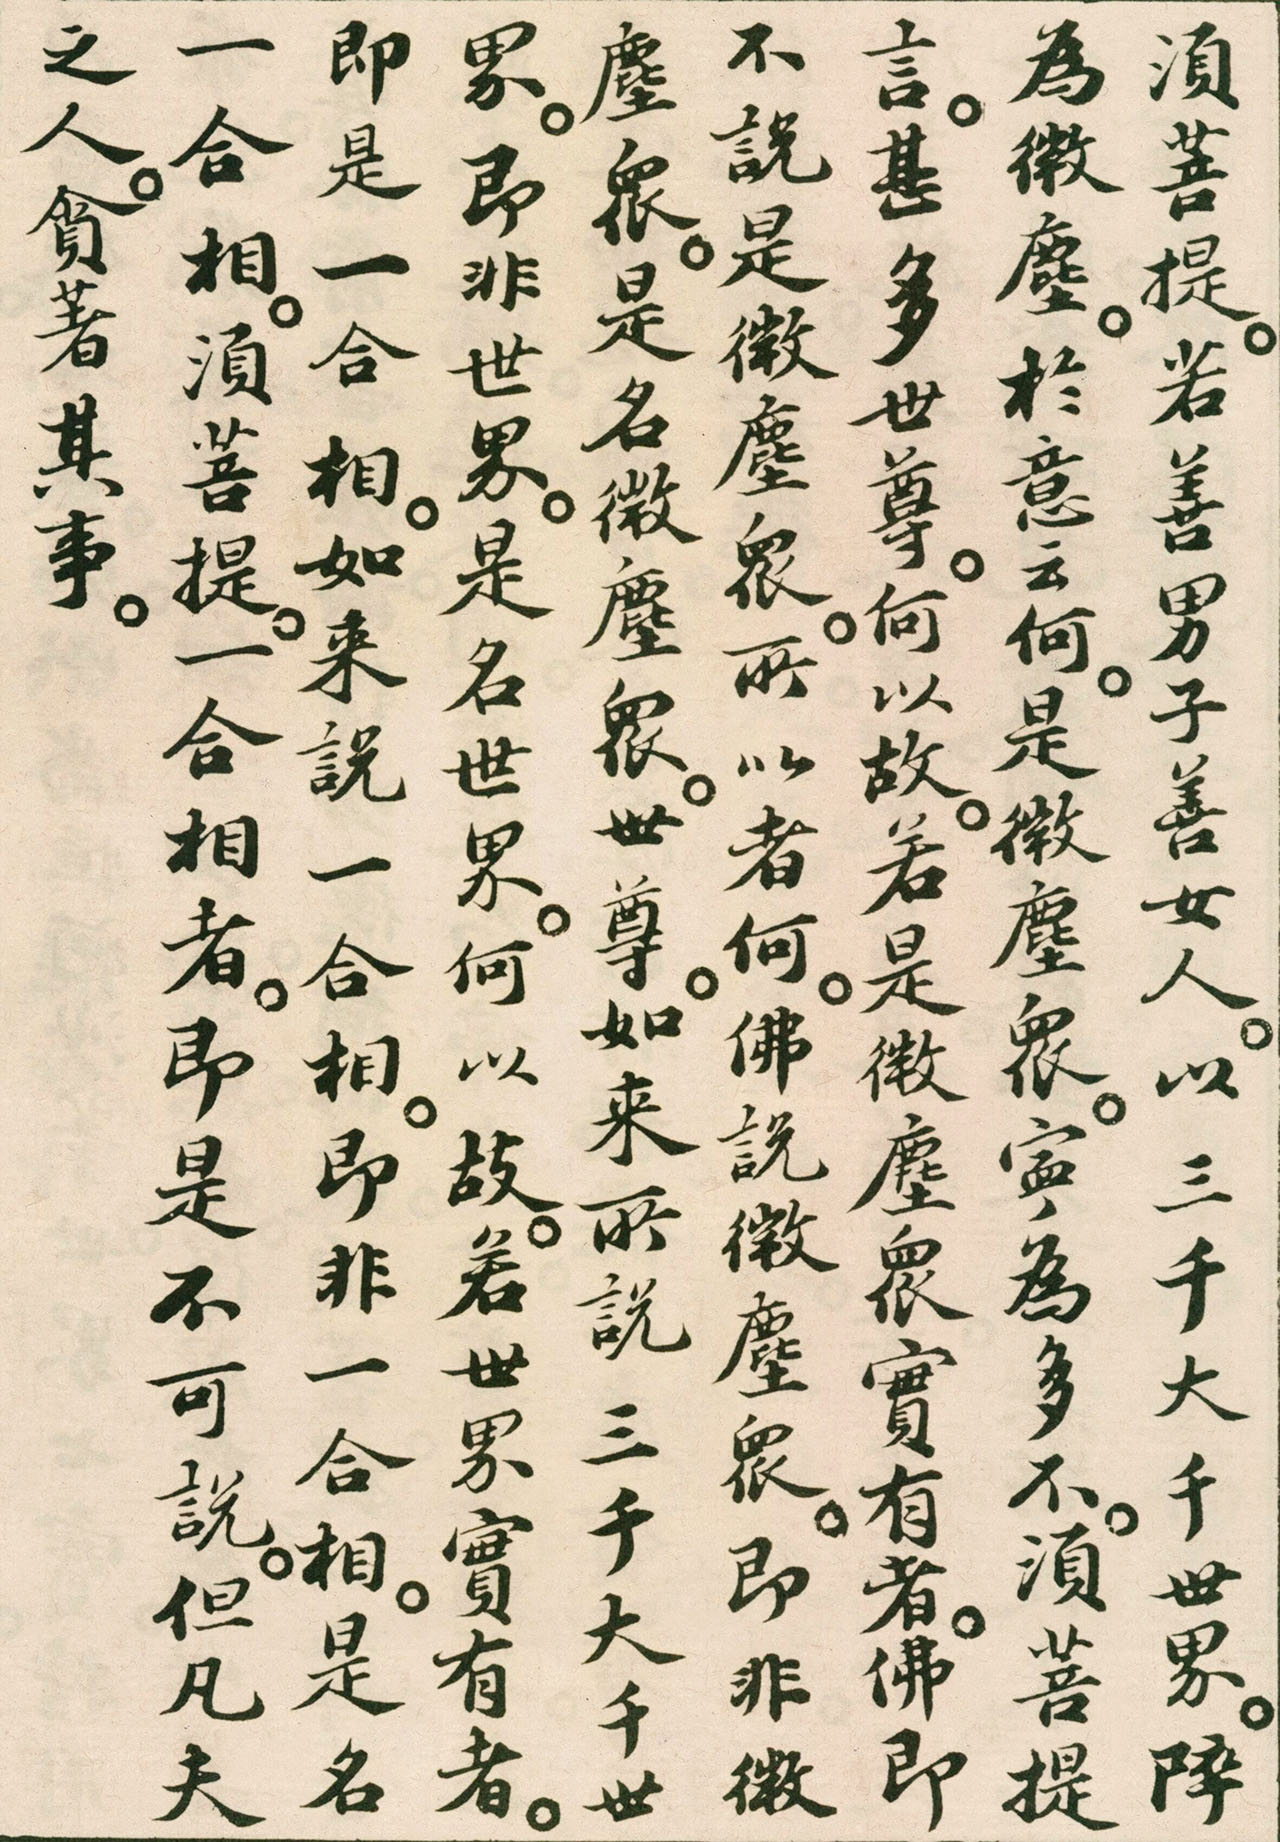 須菩提。若善男子善女人。以三千大千世界。碎
為微塵。於意云何。是微塵眾。寧為多不。須菩提
言。甚多世尊。何以故。若是微塵眾實有者。佛即
不說是微塵眾。所以者何。佛說微塵眾。即非微
塵眾。是名微塵眾。世尊。如来所說三千大千世
界。即非世界。是名世界。何以故。若世界實有者。
即是一合相。如来說一合相。即非一合相。是名
一合相。須菩提。一合相者。即是不可說。但凡夫
之人。貪著其事。